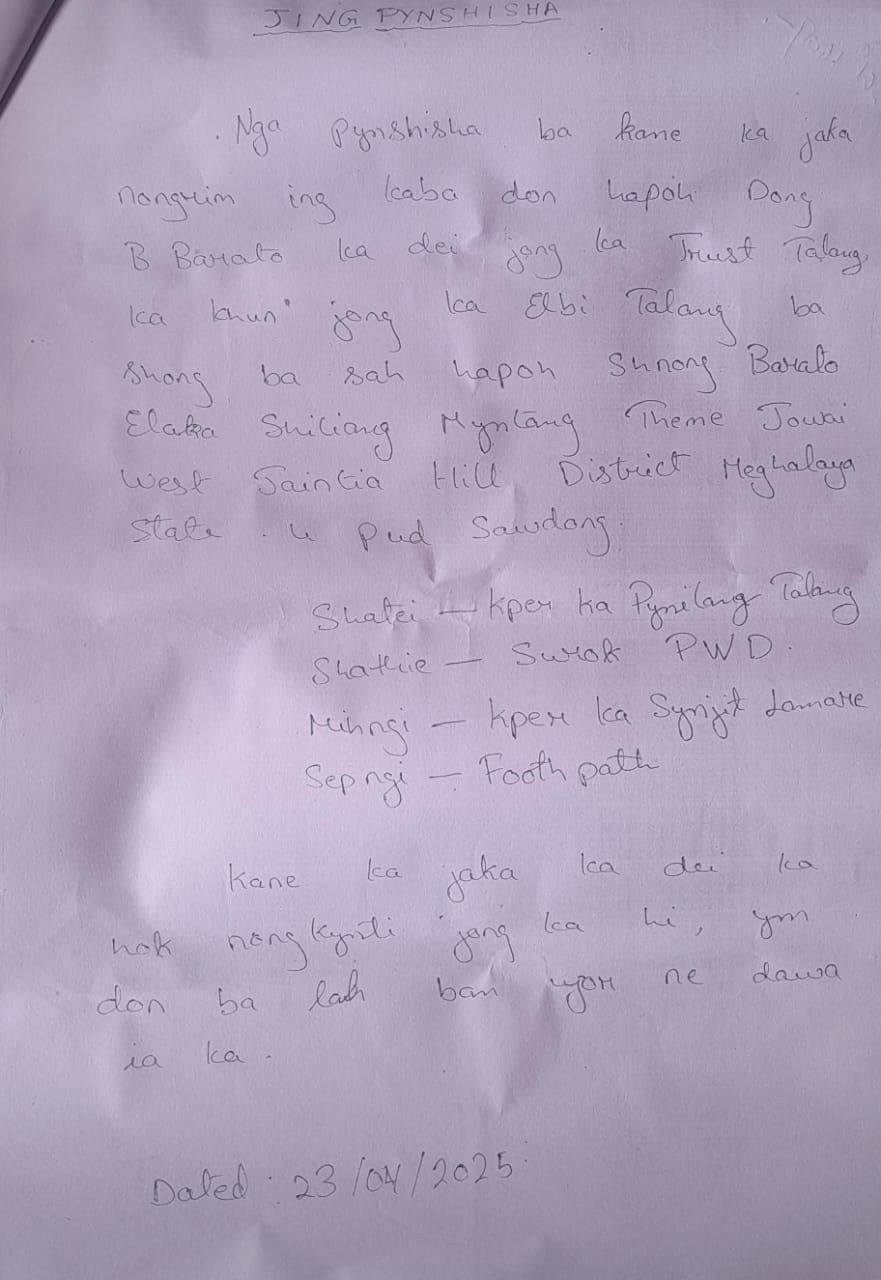 JING PYNSHISHA
. Nga Pynshisha ba kane ka jaka
nongrim ing kaba don hapoh Dong
B Barato ka dei jong ka Trust Talang,
ka khun jong ka Elbi Talang ba
shong ba sah hapoh Shnong Barato
Elaka Shiliang Myntang Theme Jowai
West Jaintia Hill District Meghalaya
State. u pud Sawdong.
Shatei — kper ka Pynilang Talang
Shathie — Surok PWD.
Mihngi — kper ka Synjit Lamare
Sepngi — Footh path
Kane ka jaka ka dei ka
hok nongkynti jong ka hi, ym
don ba lah ban ujor ne dawa
ia ka.
Dated: 23/04/2025.